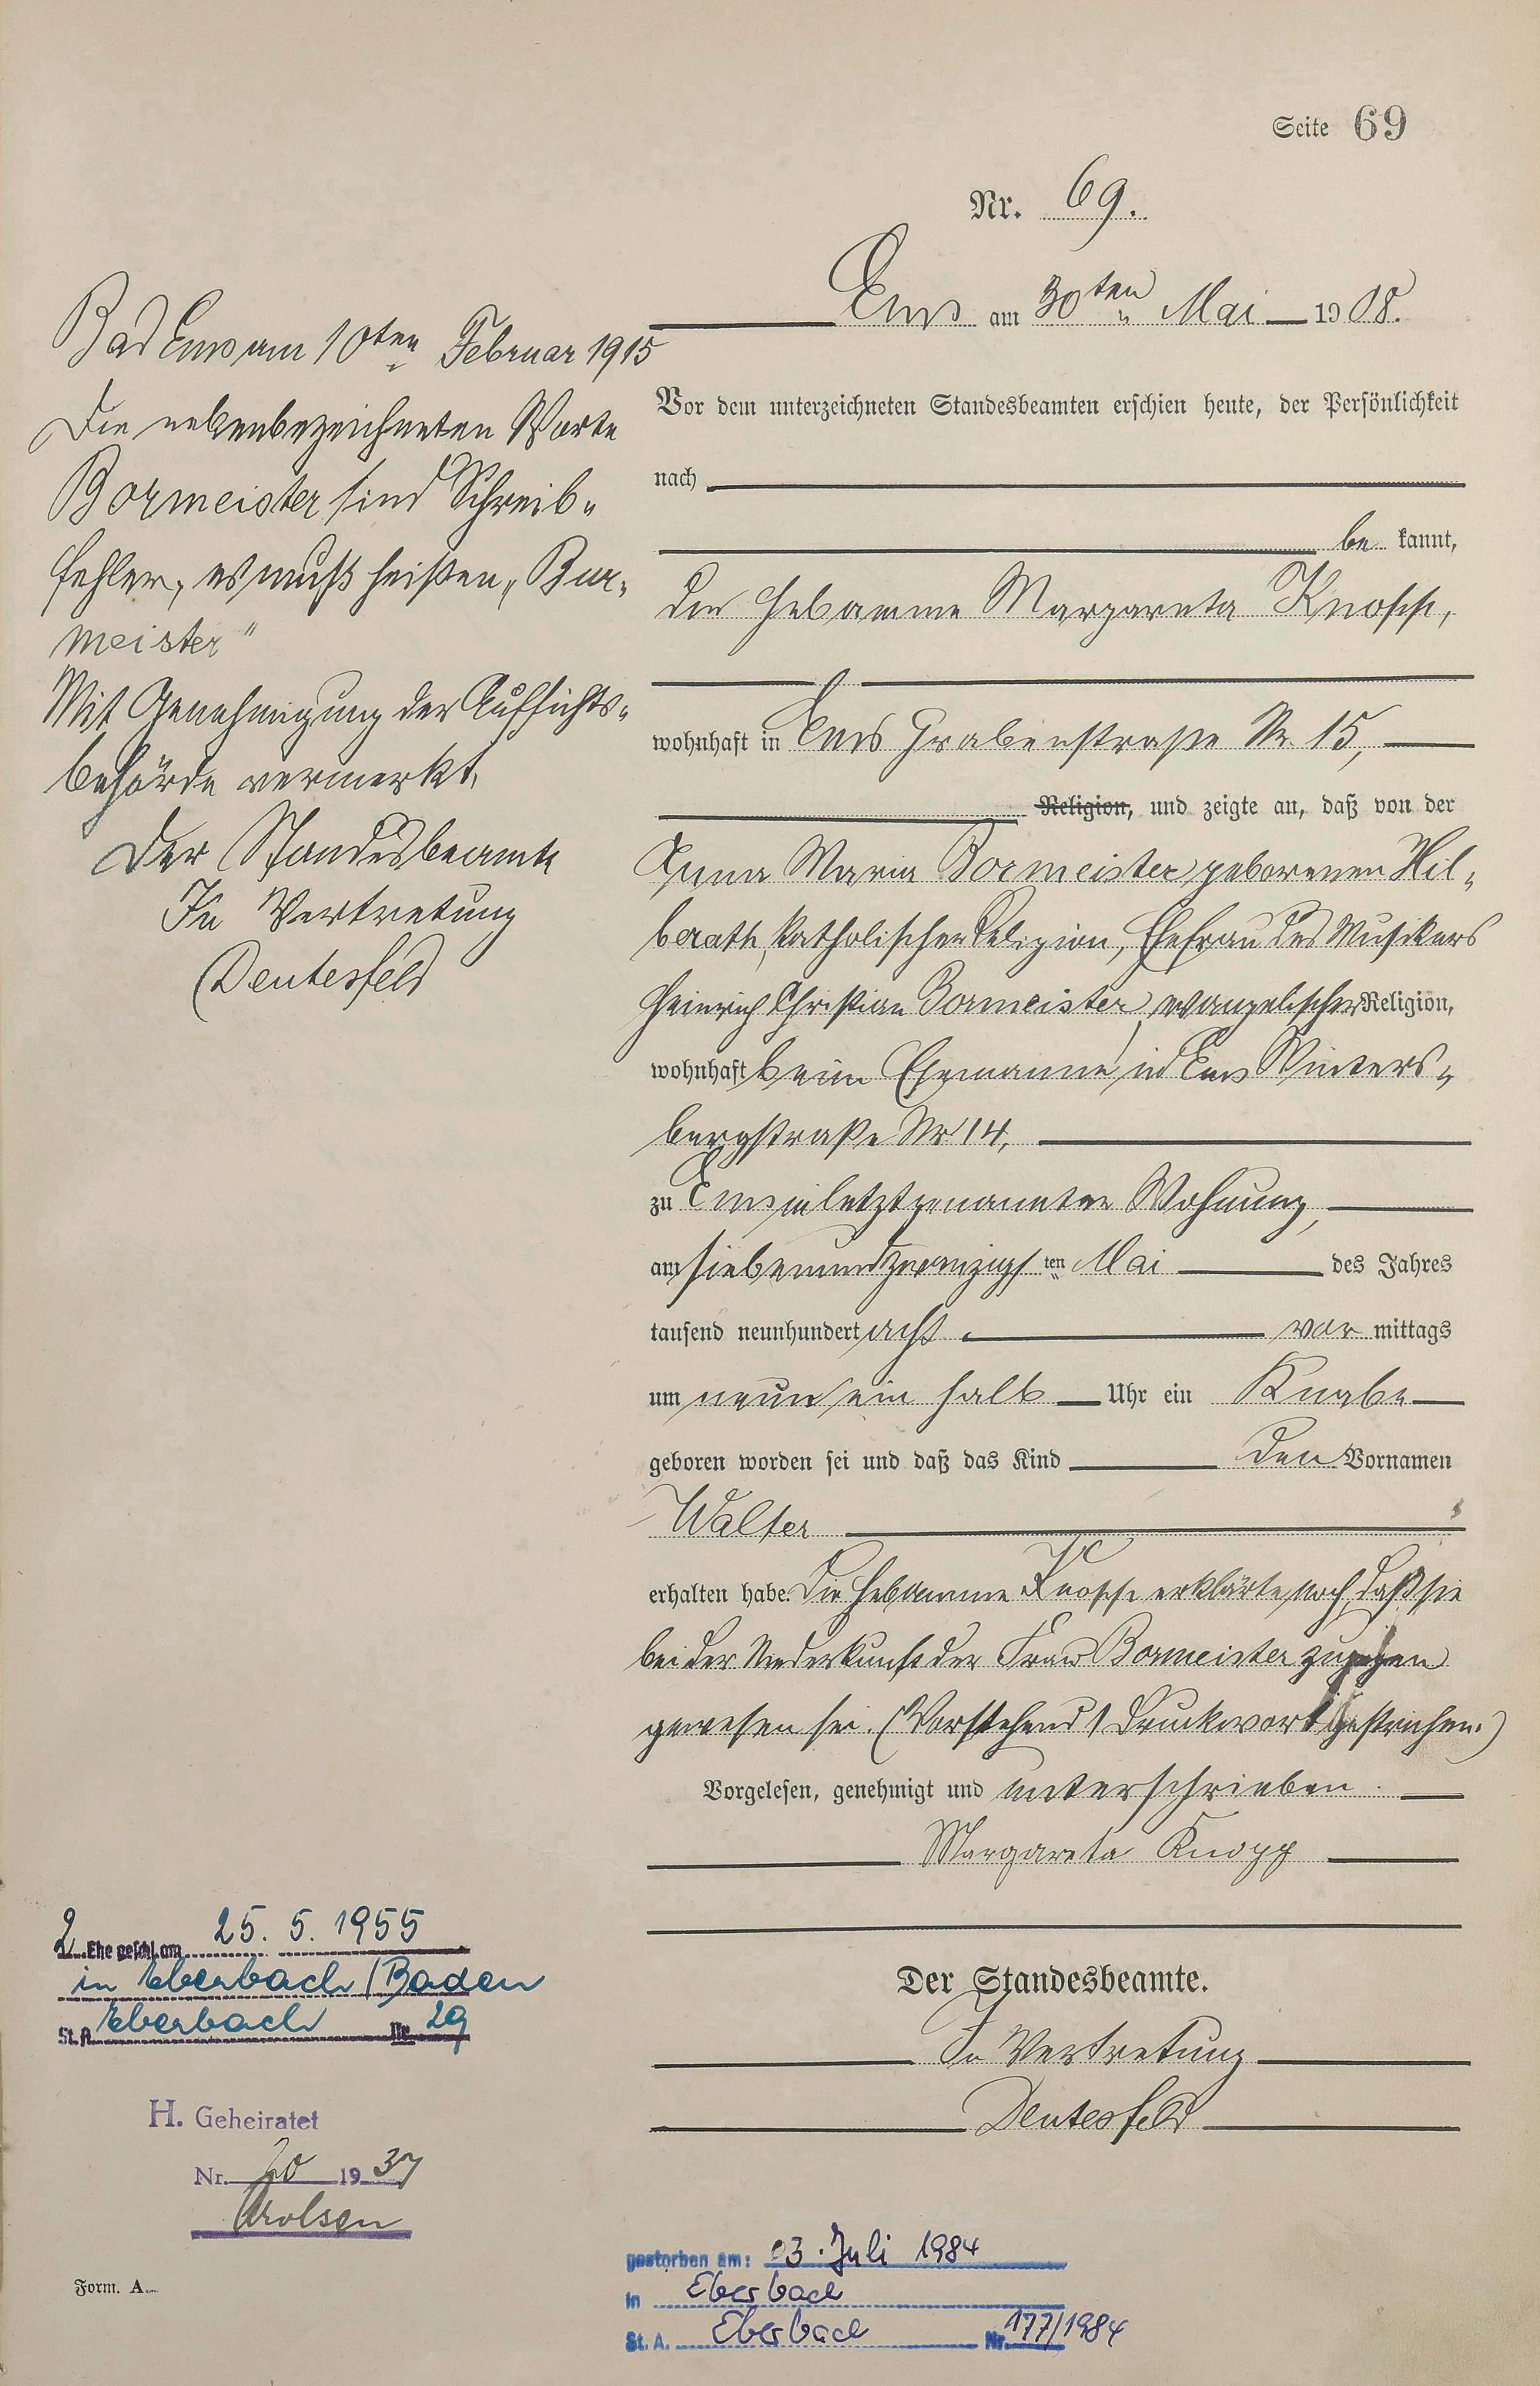 Seite 69
Nr. 69.
Ems am 30ten Mai 1908.
Vor dem unterzeichneten Standesbeamten erschien heute, der Persönlichkeit
nach
be kannt,
die Hebamme Margareta Knopp,
wohnhaft in Ems Grabenstraße Nr. 15,
Religion, und zeigte an, daß von der
Anna Maria Bormeister geborenen Hil-
berath, katholischer Religion, Ehefrau des Musikers
Heinrich Christian Bormeister, evangelischer Religion,
wohnhaft beim Ehemanne in Ems Winters-
bergstraße Nr 14,
zu Ems in letztgenannter Wohnung,
am siebenundzwanzigsten Mai des Jahres
tausend neunhundert acht vor mittags
um neun ein halb Uhr ein Knabe
geboren worden sei und daß das Kind den Vornamen
Walter
erhalten habe. Die Hebamme Knopp erklärte noch, daß sie
bei der Niederkunft der Frau Bormeister zugegen
gewesen sei. (Vorstehend 1 Druckwort gestrichen.)
Vorgelesen, genehmigt und unterschrieben.
Margareta Knopp
Der Standesbeamte.
In Vertretung
Deutesfeld
Bad Ems am 10ten Februar 1915
Die nebenbezeichneten Worte
Bormeister sind Schreib-
fehler, es muß heißen „Bur-
meister"
Mit Genehmigung der Aufsichts-
behörde vermerkt.
Der Standesbeamte
In Vertretung
Deutesfeld
2. Ehe geschl. am 25. 5. 1955
in Eberbach/Baden
St. A. Eberbach Nr. 29
H. Geheiratet
Nr. 20 1937
Arolsen
Form. A.
gestorben am: 03. Juli 1984
in Eberbach
St. A. Eberbach Nr. 177/1984